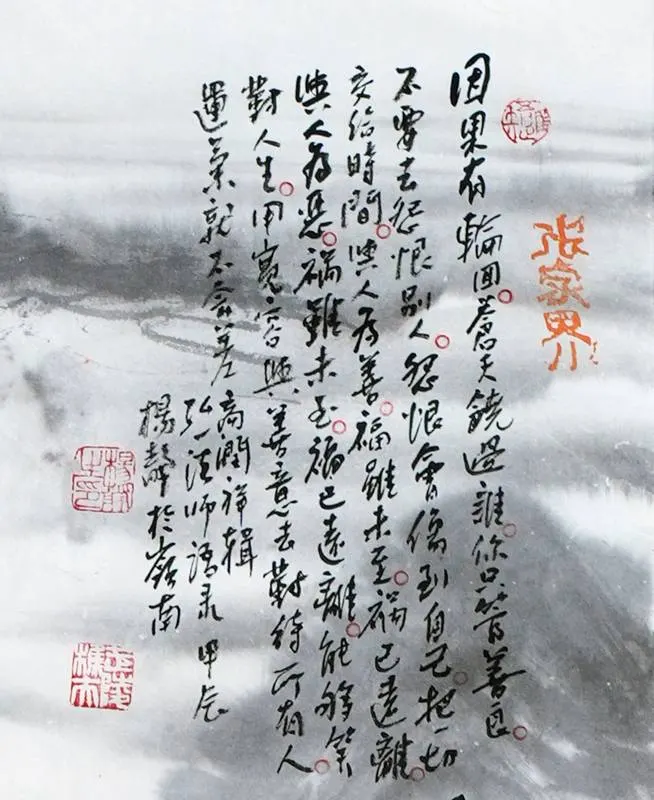 张家界
因果有輪回。蒼天饒過誰。你只管善良。
不要去怨恨别人。怨恨會傷到自己。把一切
交给時間。與人為善。福雖未至。禍已遠離。
與人為惡。禍雖未至。福已遠離。能够笑
對人生。用寬容與善意去對待所有人。
運氣就不會差 高潤祥輯
弘一法師語录 甲辰
楊聲於嶺南